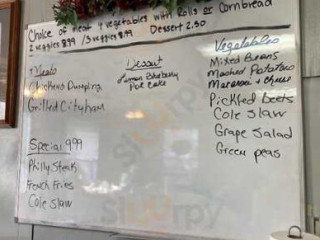 Choice of meat 4 vegetables with Rolls or Cornbread
2 veggies 8.99 / 3 veggies 8.99 Dessert 2.50
Meats
Chicken & Dumpling
Grilled City ham
Special 9.99
Philly Steak
French Fries
Cole Slaw
Dessert
Lemon Blueberry
Poke Cake
Vegetables
Mixed Beans
Mashed Potatoes
Macaroni + Cheese
Pickled Beets
Cole Slaw
Grape Salad
Green peas
Sluurpy